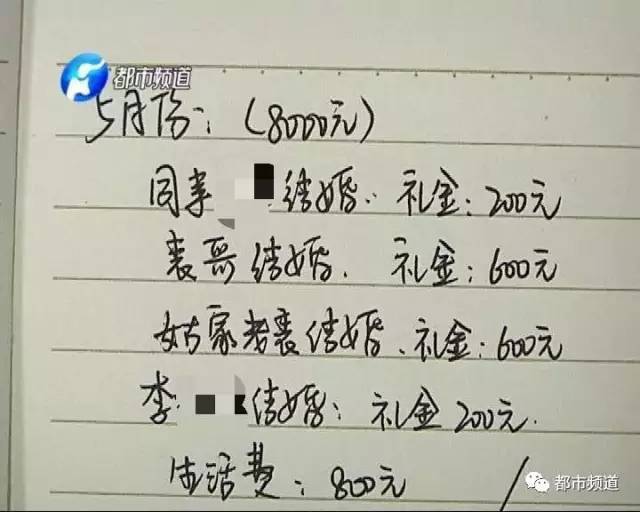 都市频道
5月份：（8000元）
同事 结婚：礼金：200元
表哥结婚. 礼金：600元
姑家老表结婚、礼金：600元
李 结婚：礼金 200元.
生活费：800元
都市频道